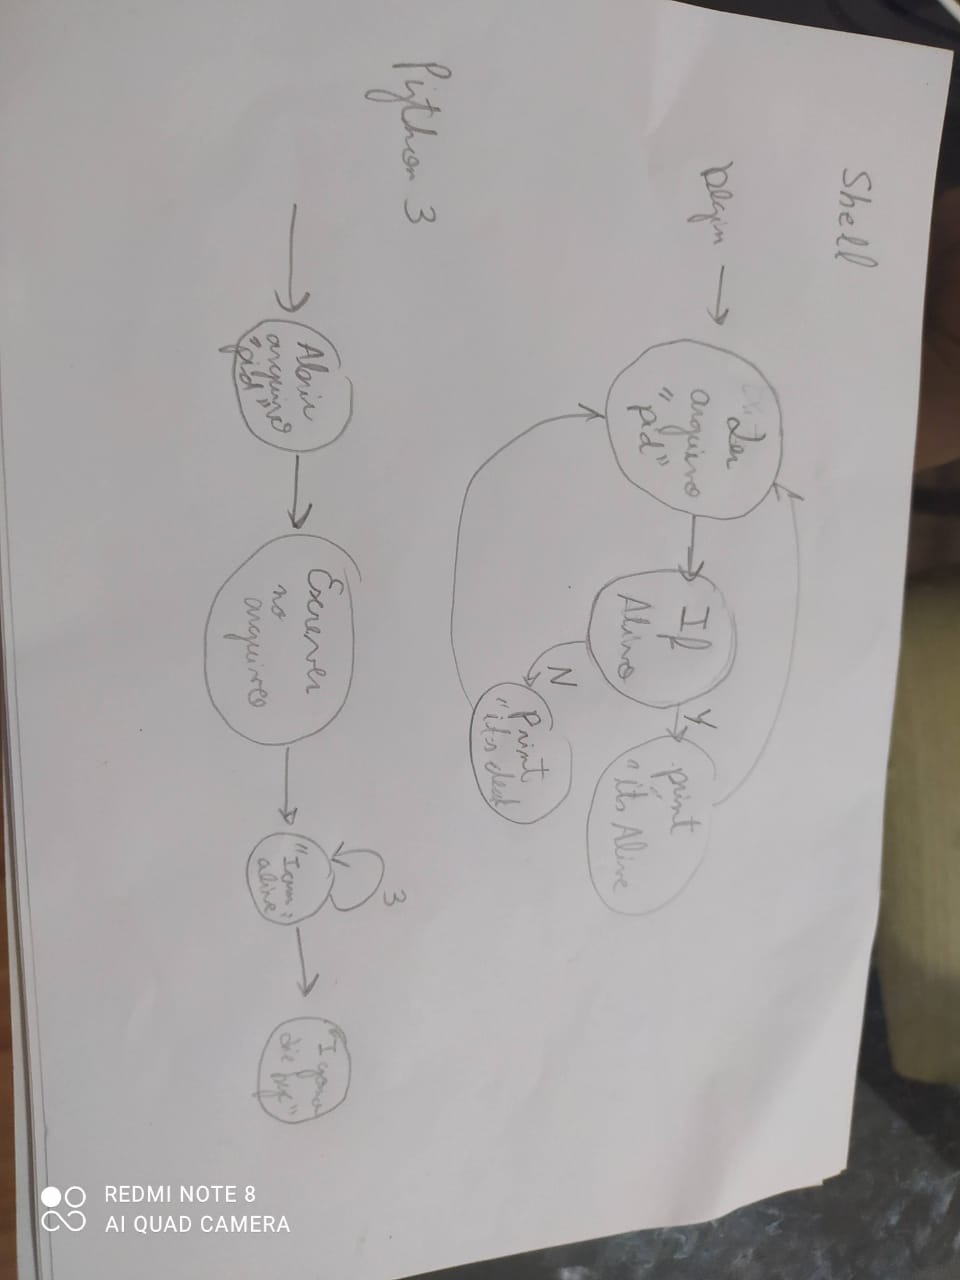 Shell
begin
Ler
arquivo
"pid"
If
Alive
Y
print
"its Alive
N
Print
"its dead
Python 3
Abrir
arquivo
"pid"
Escrever
no
arquivo
"I am
alive
3
"I gona
die bye"
REDMI NOTE 8
AI QUAD CAMERA